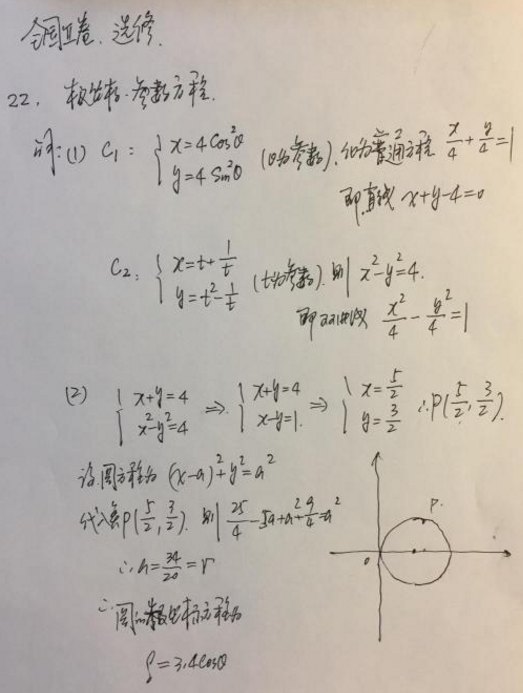 全国II卷. 选修.
22. 极坐标·参数方程.
解: (1) C₁: { x=4cos²θ y=4sin²θ (θ为参数), 化为普通方程 x/4 + y/4 = 1
即直线 x+y-4=0
C₂: { x=t+1/t y=t²-1/t (t为参数). 则 x²-y²=4.
即双曲线 x²/4 - y²/4 = 1
(2) { x+y=4 x²-y²=4 ⇒ { x+y=4 x-y=1. ⇒ { x=5/2 y=3/2 ∴P(5/2, 3/2).
设圆方程为 (x-a)²+y²=a²
代入点P(5/2, 3/2). 则 25/4 - 5a+a²+9/4=a²
∴a=34/20=r
∴圆的极坐标方程为
ρ=3.4cosθ
P.
0